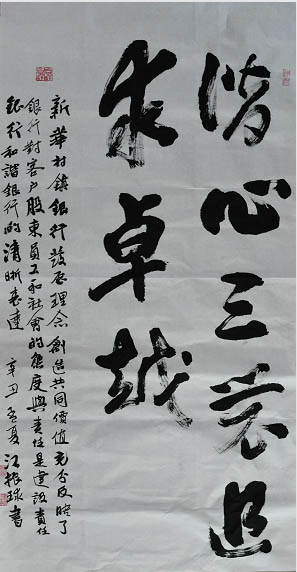 潜心三農追
求卓越
新華村鎮銀行發展理念創造共同價值充分反映了
銀行對客户股東員工和社會的態度與責任是建設責任
銀行和諧銀行的清晰表達 辛丑孟夏 江振球書